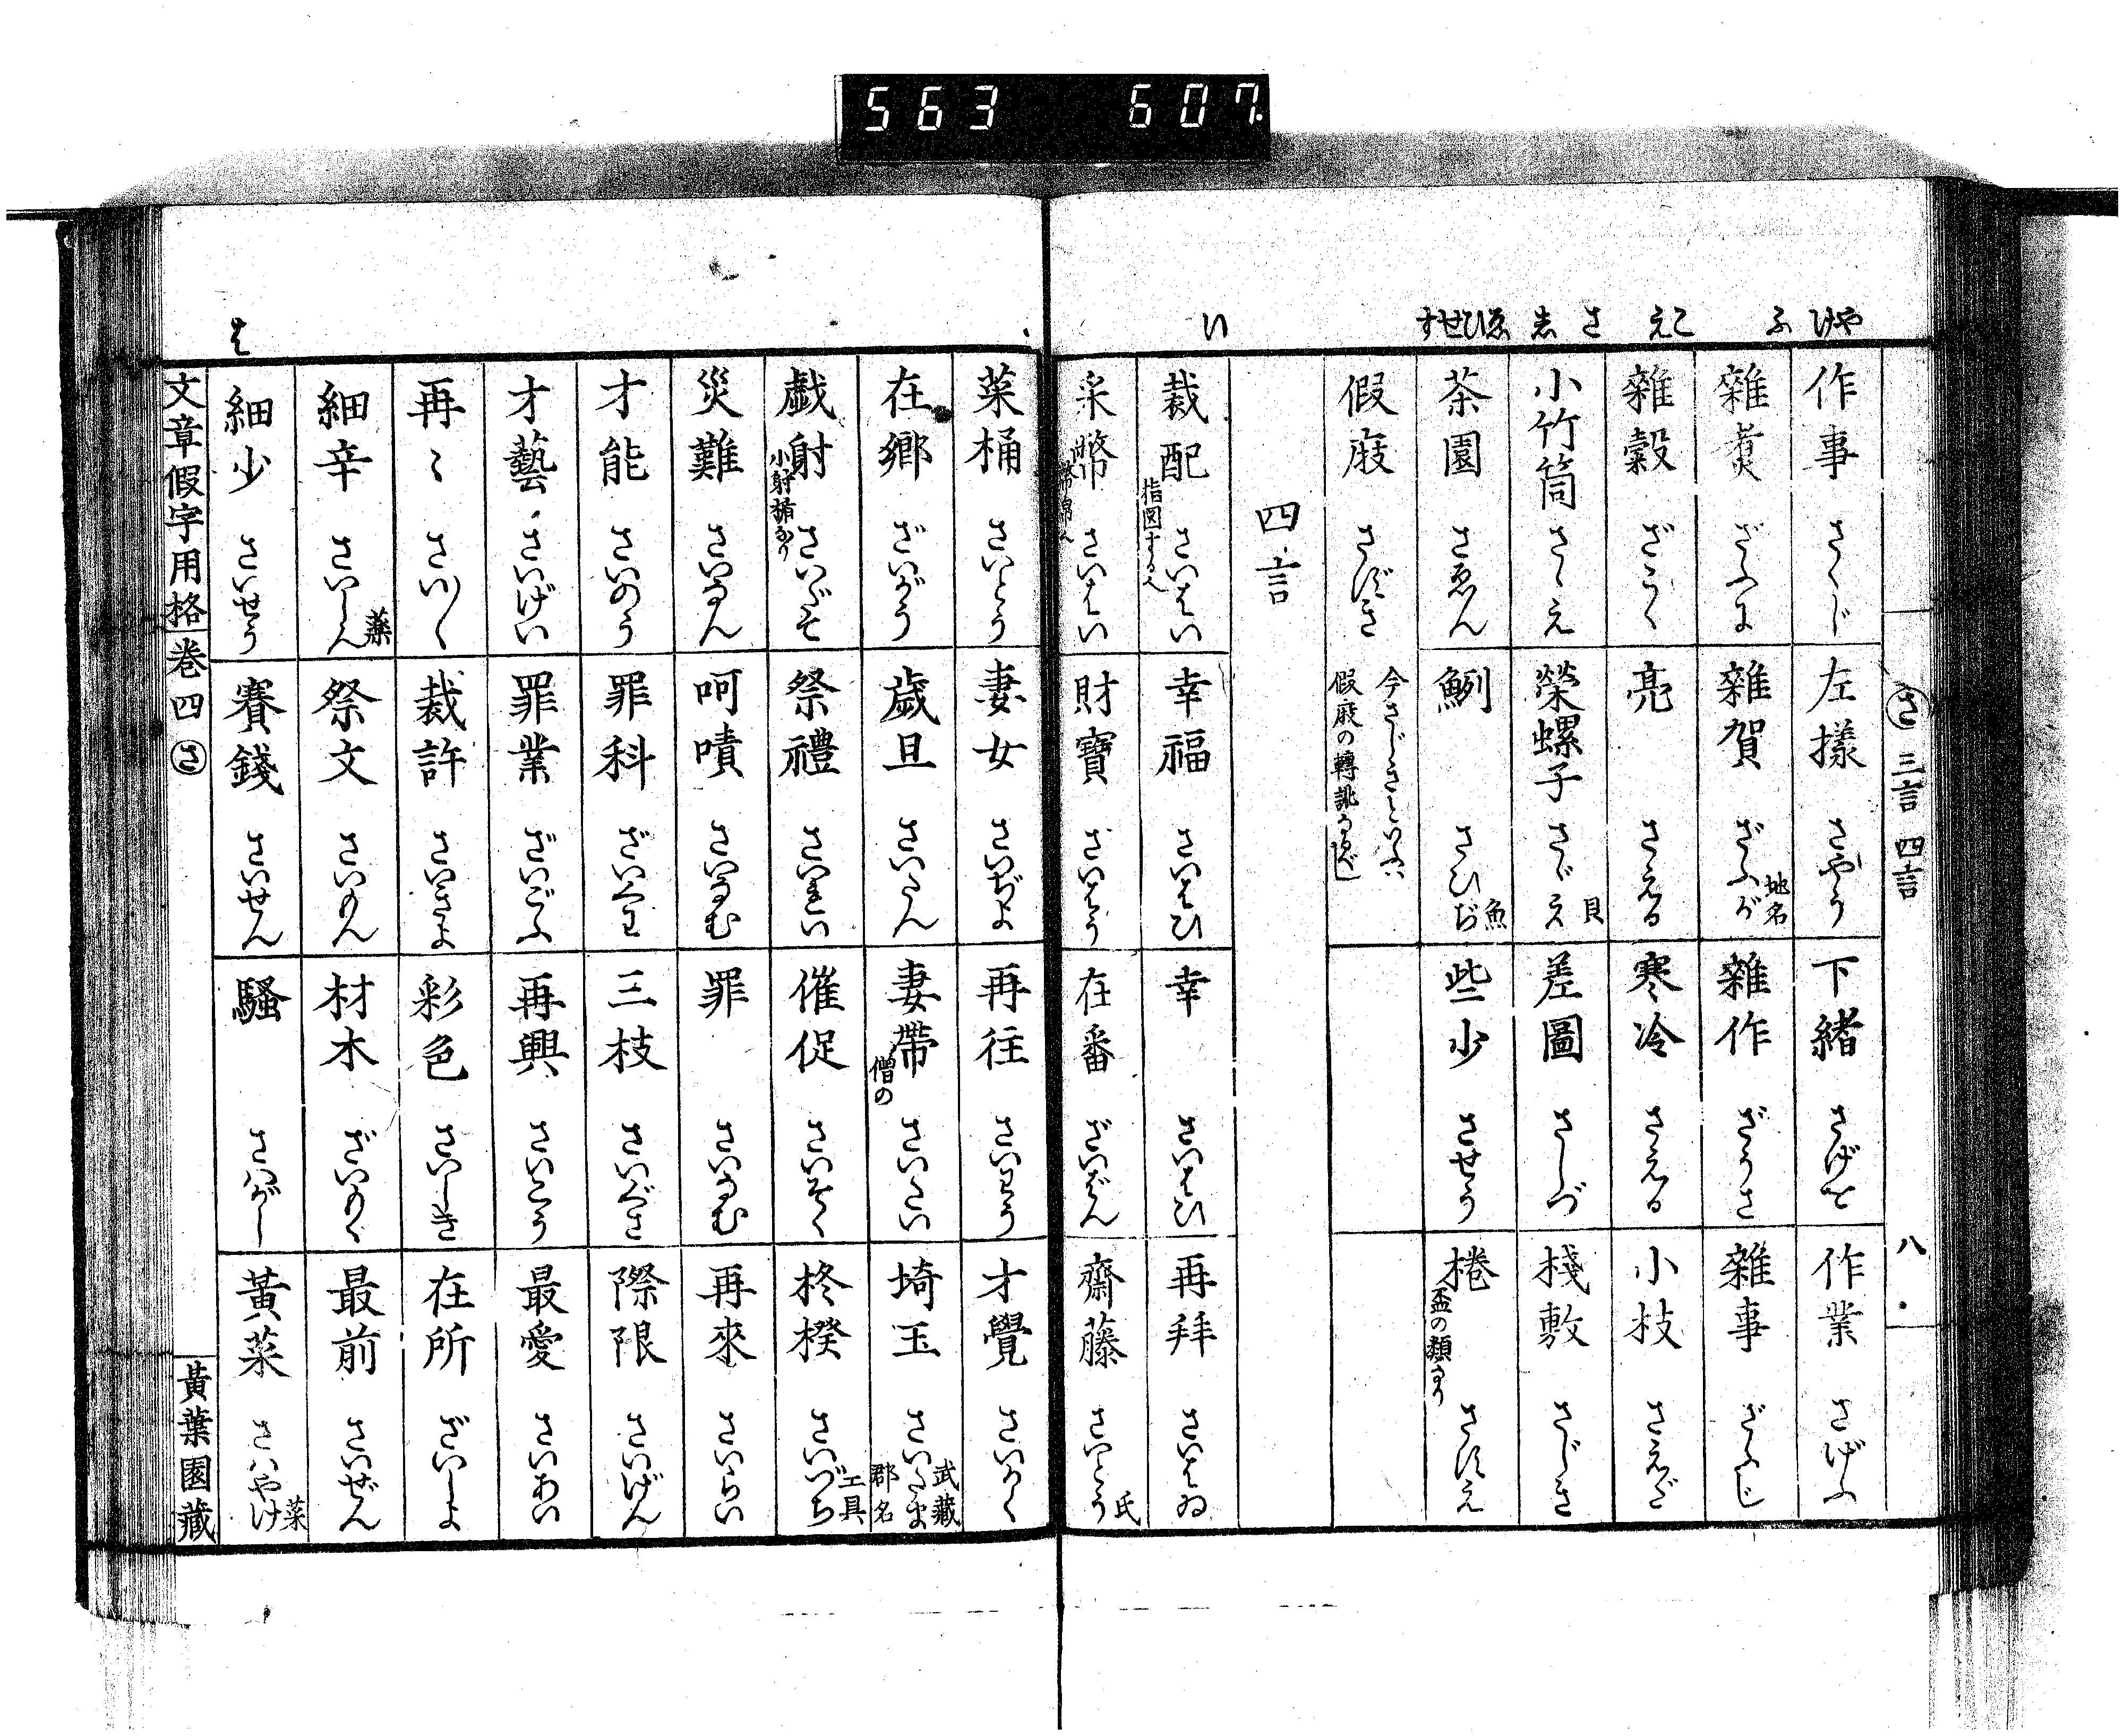 563 607
やけひ ふ こえ さ し ゑひせす い
さ 三言 四言 八
作事 さくじ 左様 さやう 下緒 さげを 作業 さげふ
雜煮 ざふに 雜賀 ざふが 地名 雜作 ざうさ 雜事 ざふじ
雜穀 ざこく 亮 さえる 寒冷 さえる 小枝 さえだ
小竹筒 さゝえ 榮螺子 さゞえ 貝 差圖 さしづ 棧敷 さじき
茶園 さゑん 鮤 さひぢ 魚 些少 させう 棬 盃の類なり さすえ
假庪 さずき 今さじきといふハ 假庪の轉訛なるべし
四言
裁配 指図する也 さいはい 幸福 さいはひ 幸 さいはひ 再拜 さいはゐ
采幣 さいはい 財寶 ざいはう 在番 ざいばん 齋藤 さいとう 氏
菜桶 さいとう 妻女 さいぢよ 再往 さいわう 才覺 さいかく
在鄉 ざいがう 歲旦 さいたん 妻帶 僧の さいたい 埼玉 さいたま 武藏郡名
戯射 小射揃なり さいだて 祭禮 さいれい 催促 さいそく 柊楑 さいづち 工具
災難 さいなん 呵嘖 さいなむ 罪 さいなむ 再來 さいらい
才能 さいのう 罪科 ざいくわ 三枝 さいぐさ 際限 さいげん
才藝 さいげい 罪業 ざいごふ 再興 さいこう 最愛 さいあい
再〻 さい〳〵 裁許 さいきよ 彩色 さいしき 在所 ざいしよ
細辛 さいしん 藥 祭文 さいもん 材木 ざいもく 最前 さいぜん
は
細少 さいせう 賽錢 さいせん 騷 さハがし 黃菜 さハやけ 菜
文章假字用格 卷四 さ 黃葉園藏